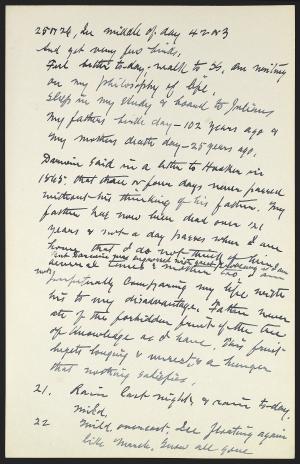 in middle of day 42
And yet very few birds.
Feel better to-day, walk to
on my philosophy of life.
Sleep in my study & board to Julians
My fathers birth day - 102 years ago &
My mothers death day - 25 years ago.
Darwin said in a letter to Hooker in
1865 that three or four days never passed
without his thinking of his father. My
father has now been dead over 21
years & not a day passes when I am
home that I do not think of him
several times & mother too. I am
perpetually comparing my life with
his to my disadvantage. Father never
ate of the forbidden fruit of the tree
of Knowledge as I have. This fruit
begets longing & unrest & a hunger
that nothing satisfies.
21. Rain last night, & rain to-day,
mild.
22 Mild, overcast. Ice floating again
like March. Snow all gone